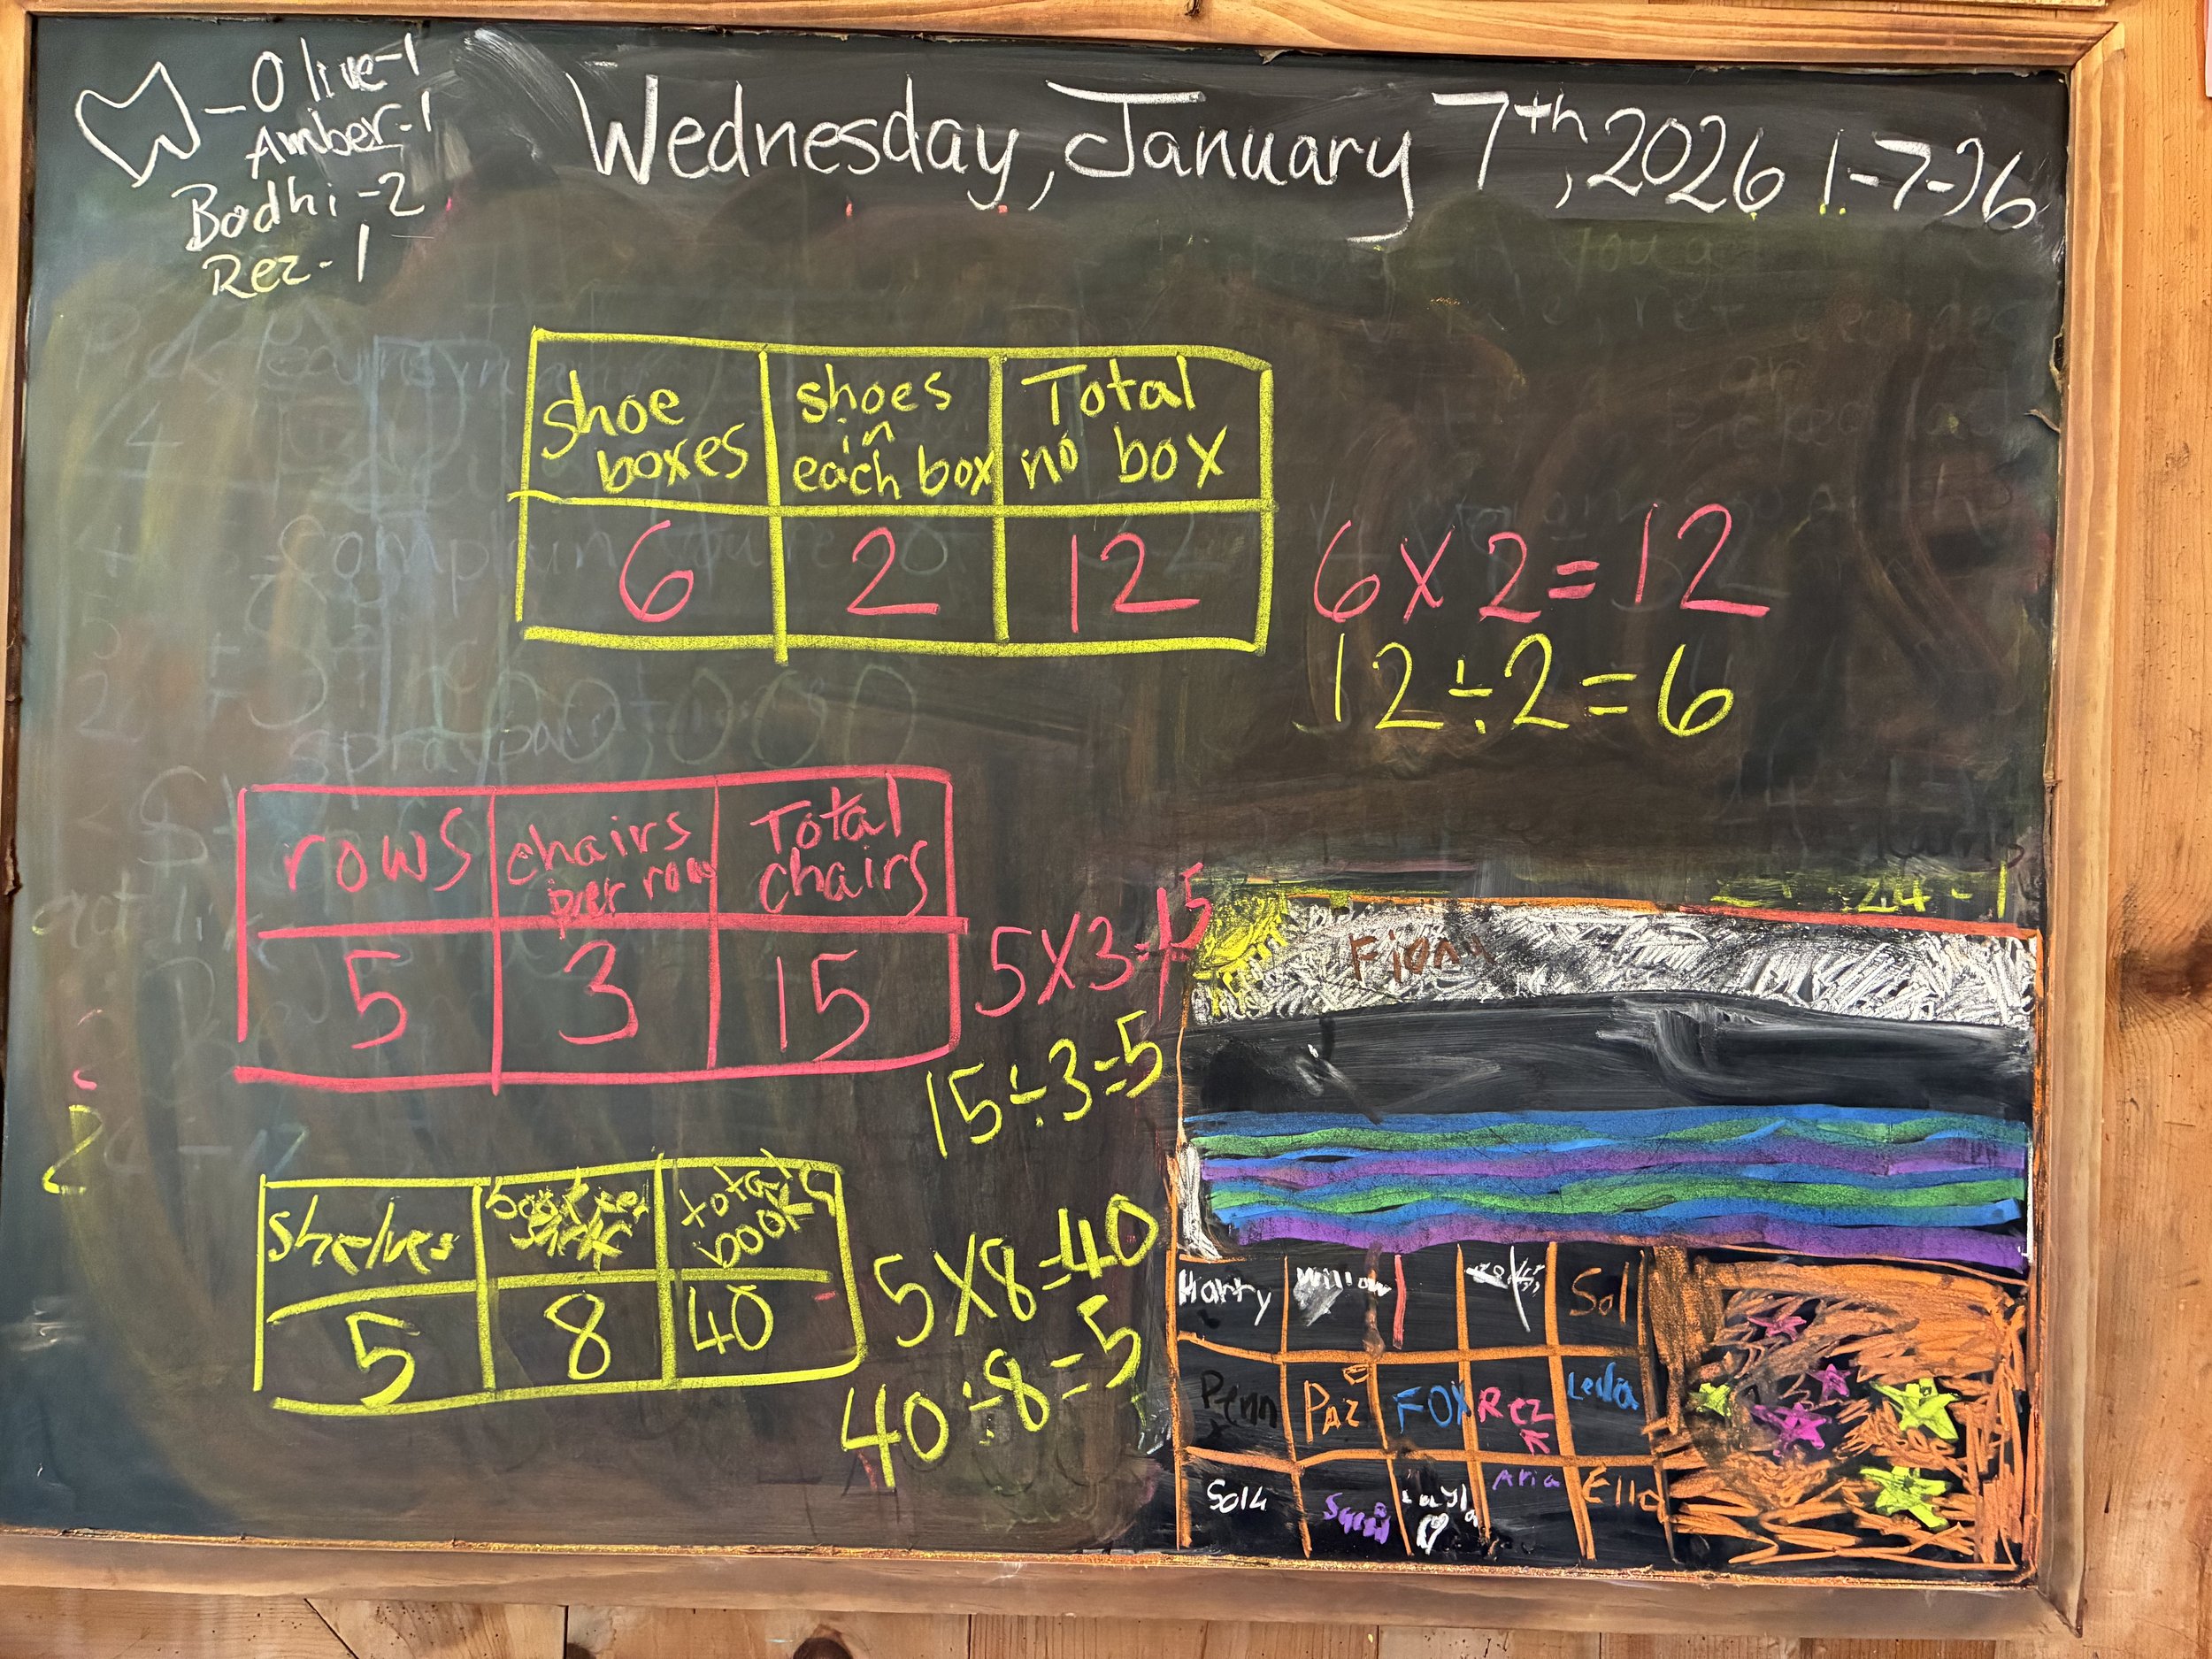 Olive-1
Amber-1
Bodhi-2
Rez-1
Wednesday, January 7th, 2026 1-7-26
shoe boxes
shoes in each box
Total no box
6 2 12
6 x 2 = 12
12 ÷ 2 = 6
rows
chairs per row
Total chairs
5 3 15
5 x 3 = 15
15 ÷ 3 = 5
shelves
total books
5 8 40
5 x 8 = 40
40 ÷ 8 = 5
24 - 1
Fiona
Harry Willow Sol
Penn PAZ FOX Rez Leila
Layla Aria Ella